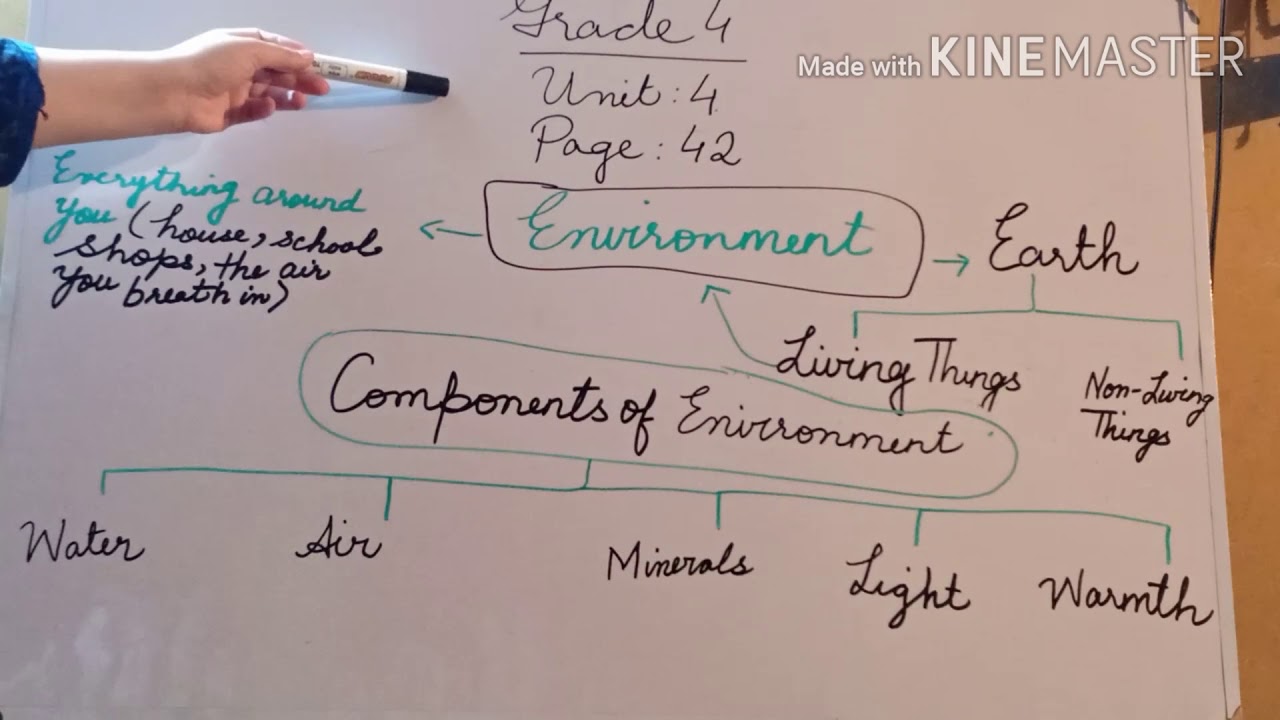 Grade 4
Made with KINEMASTER
Unit : 4
Page : 42
Everything around
you (house, school
shops, the air
you breath in)
Environment
Earth
Living Things
Non-Living
Things
Components of Environment
Water
Air
Minerals
Light
Warmth